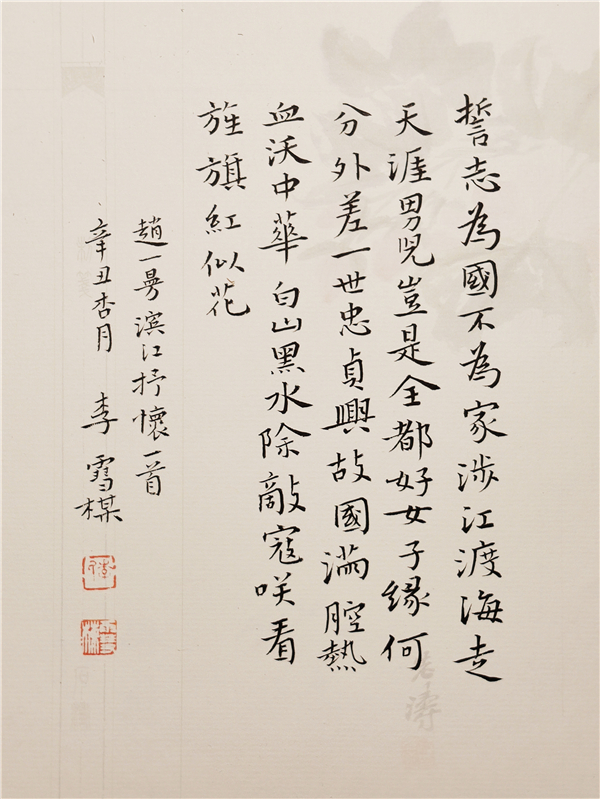 誓志為國不為家涉江渡海走
天涯男児豈是全都好女子緣何
分外差一世忠貞興故國滿腔熱
血沃中華白山黑水除敵寇咲看
旌旗紅似花
趙一曼滨江抒懷一首
辛丑杏月 李雪楳